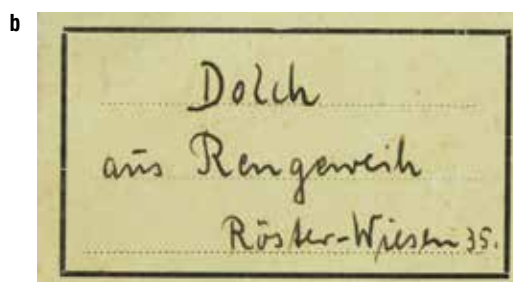 b
Dolch
aus Rengeweih
Röster-Wiesen 35.